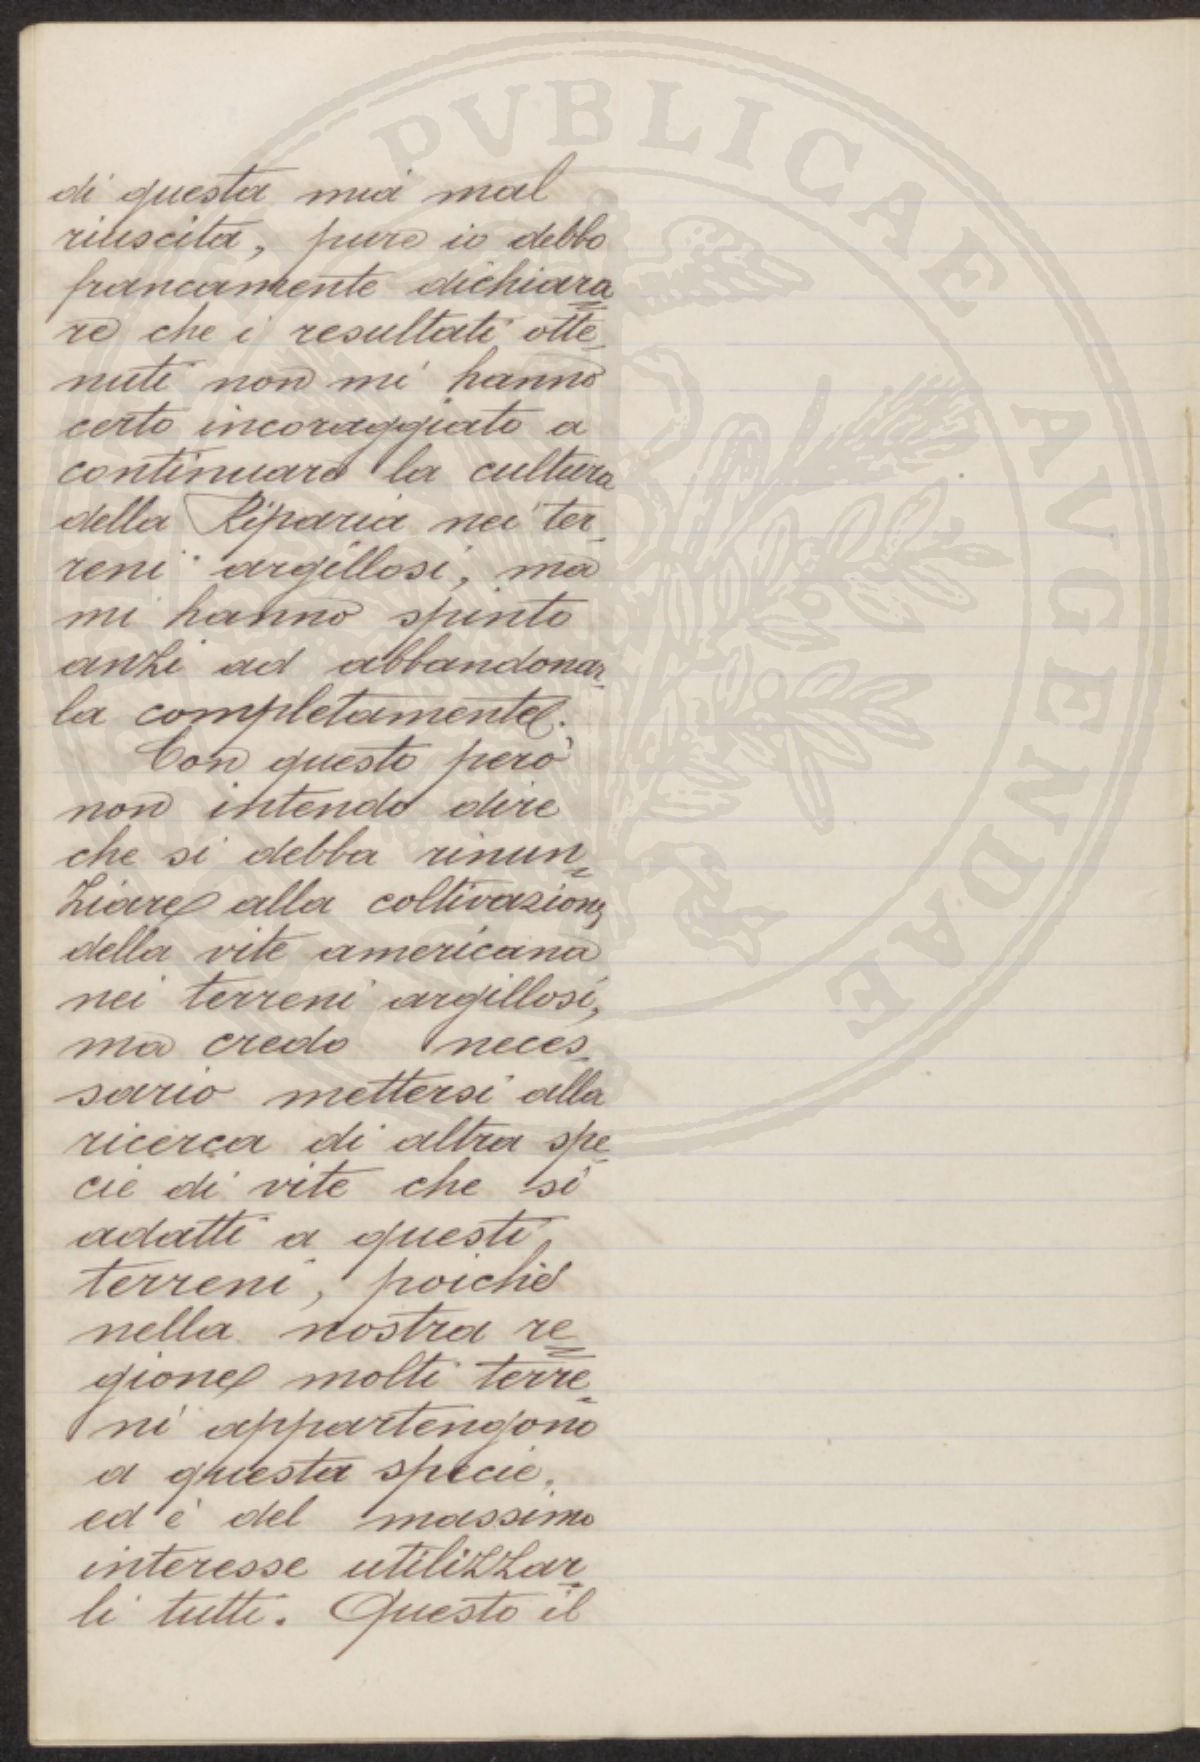 PVBLICAE AVGENDAE
di questa mia mal
riuscita, pure io debbo
francamente dichiara=
re che i resultati otte-
nuti non mi hanno
certo incoraggiato a
continuare la cultura
della Riparia nei ter-
reni argillosi, ma
mi hanno spinto
anzi ad abbandonar-
la completamente.
Con questo però
non intendo dire
che si debba rinun=
ziare alla coltivazione
della vite americana
nei terreni argillosi,
ma credo neces-
sario mettersi alla
ricerca di altra spe-
cie di vite che si
adatti a questi
terreni, poichè
nella nostra re=
gione molti terre=
ni appartengono
a questa specie,
ed è del massimo
interesse utilizzar-
li tutti. Questo il